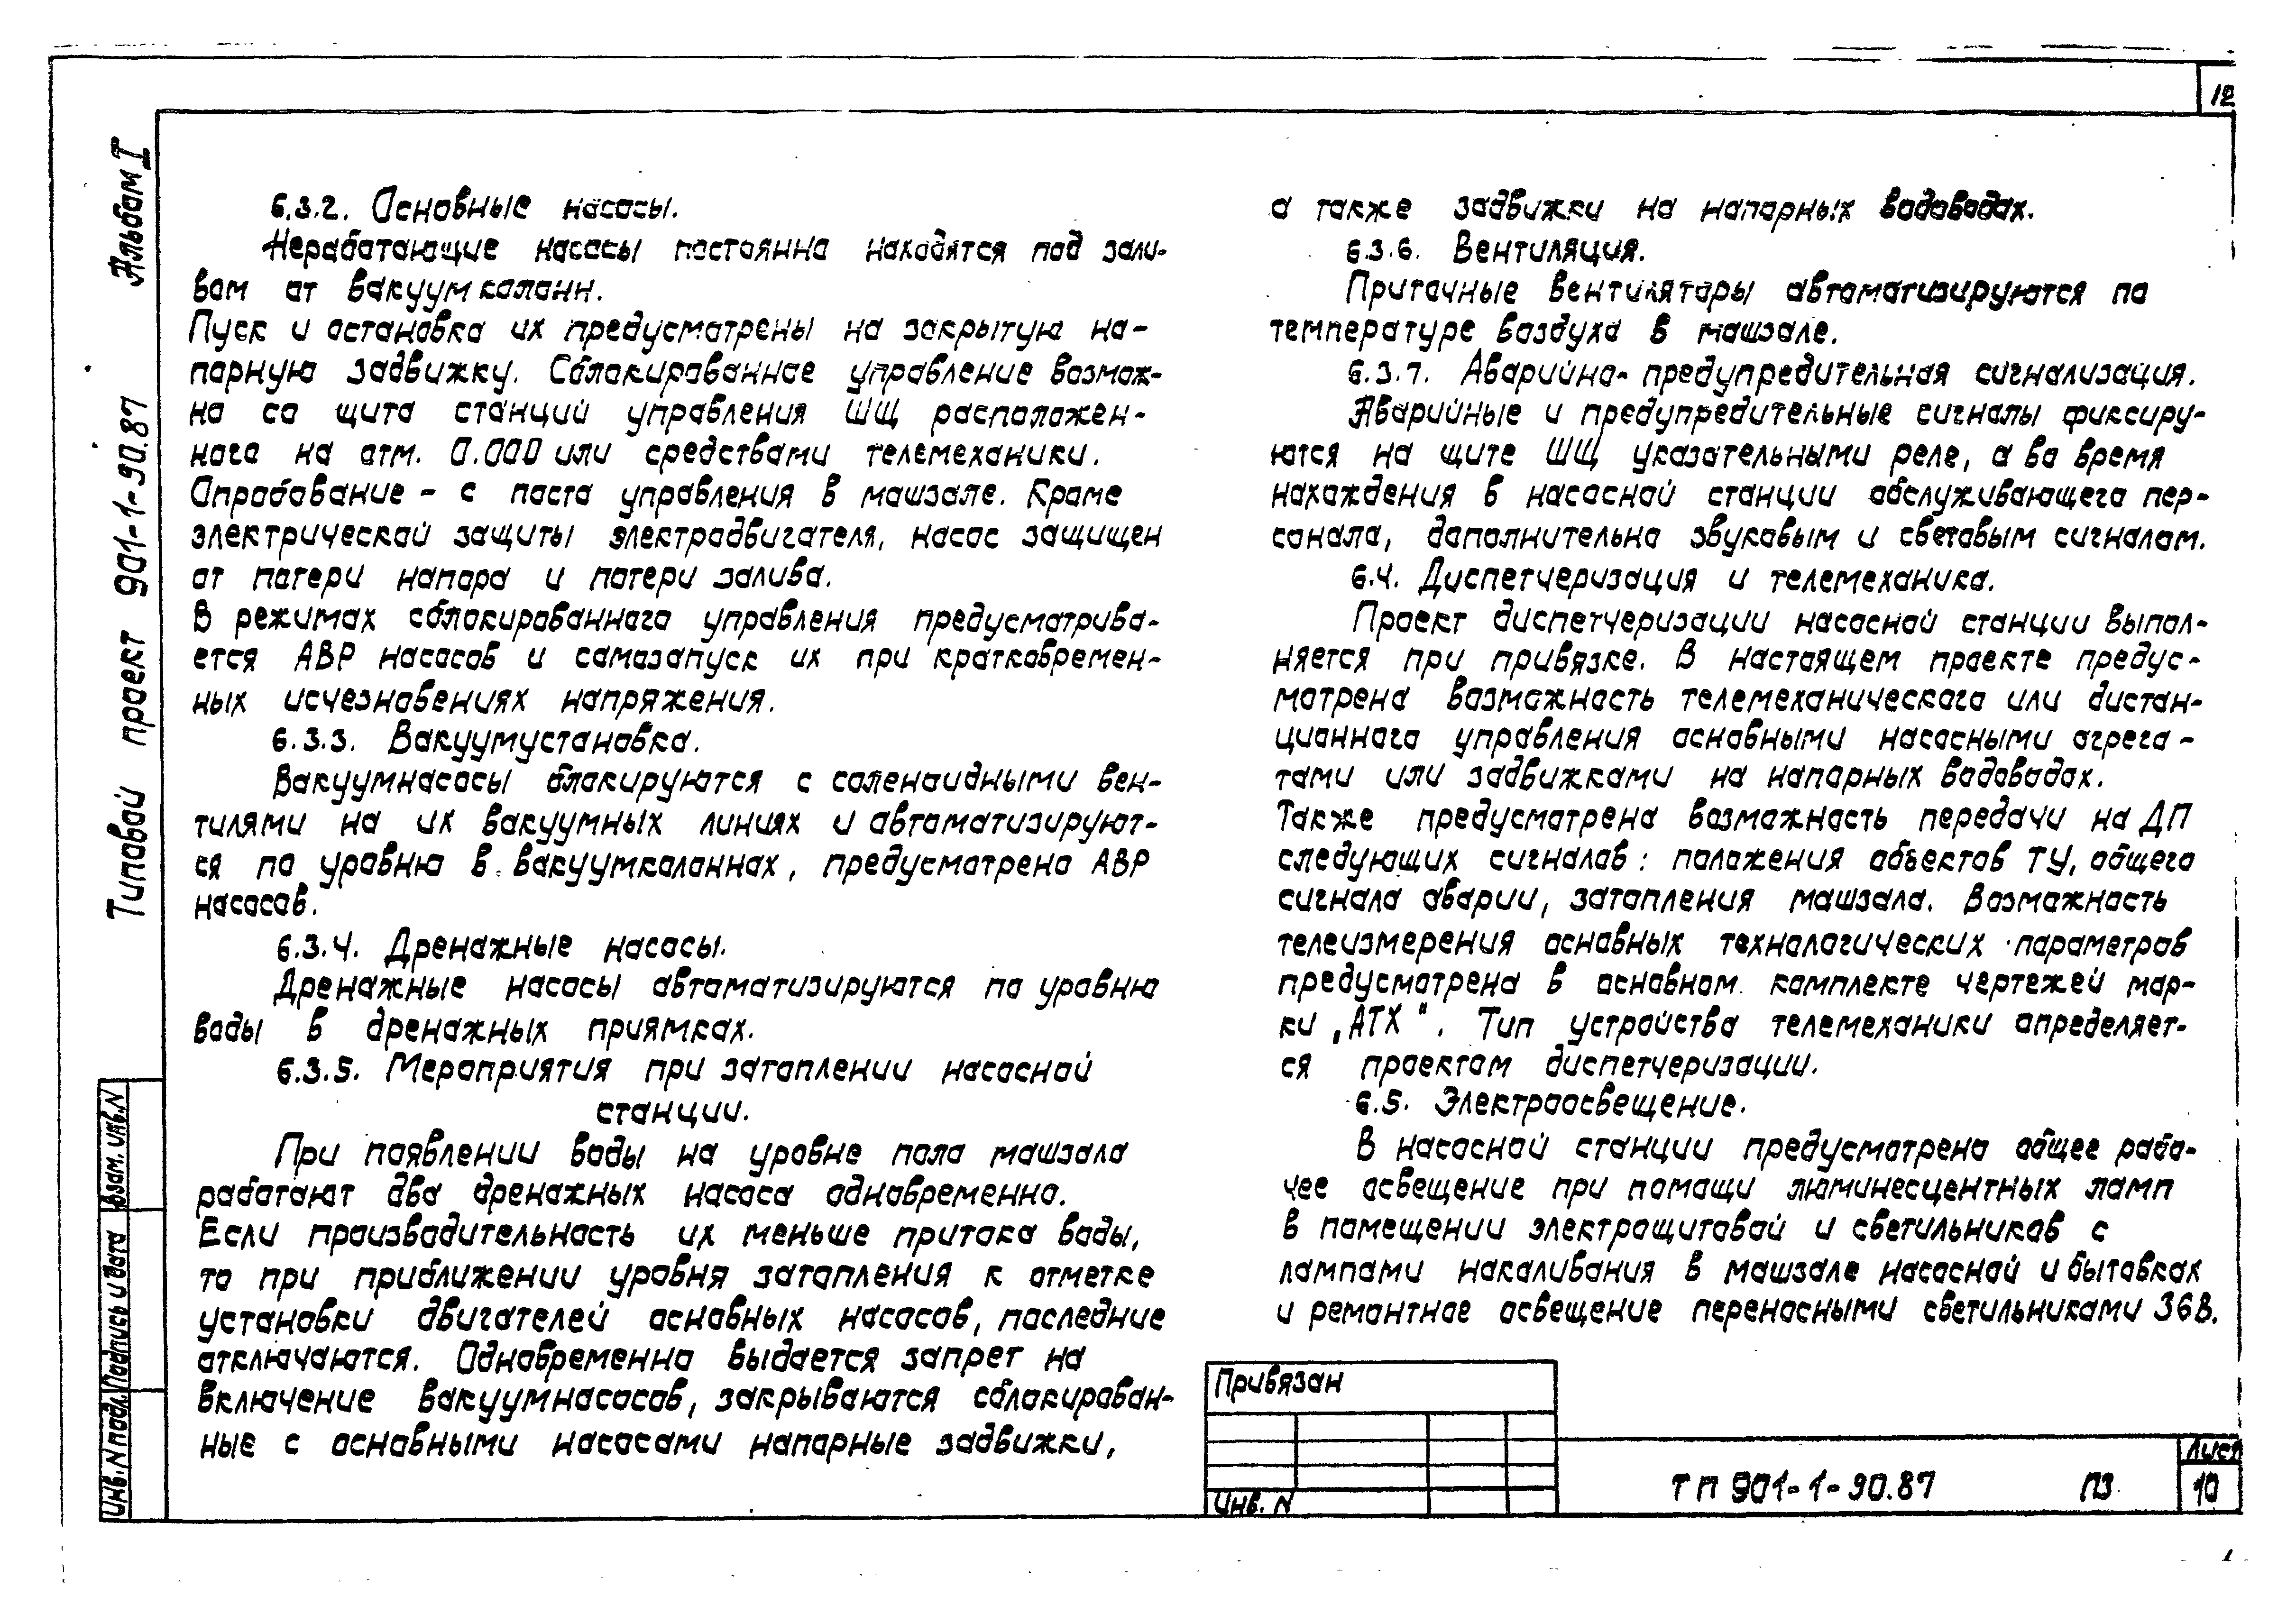 12
Альбом I
Типовой проект 901-1-90.87
6.3.2. Основные насосы.
Неработающие насосы постоянно находятся под зали-
вом от вакуумколонн.
Пуск и остановка их предусмотрены на закрытую на-
порную задвижку. Сблокированное управление возмож-
но со щита станций управления ШЩ расположен-
ного на отм. 0.000 или средствами телемеханики.
Опробование - с поста управления в машзале. Кроме
электрической защиты электродвигателя, насос защищен
от потери напора и потери залива.
В режимах сблокированного управления предусматрива-
ется АВР насосов и самозапуск их при кратковремен-
ных исчезновениях напряжения.
6.3.3. Вакуумустановка.
Вакуумнасосы блокируются с соленоидными вен-
тилями на их вакуумных линиях и автоматизируют-
ся по уровню в вакуумколоннах, предусмотрено АВР
насосов.
6.3.4. Дренажные насосы.
Дренажные насосы автоматизируются по уровню
воды в дренажных приямках.
6.3.5. Мероприятия при затоплении насосной
станции.
При появлении воды на уровне пола машзала
работают два дренажных насоса одновременно.
Если производительность их меньше притока воды,
то при приближении уровня затопления к отметке
установки двигателей основных насосов, последние
отключаются. Одновременно выдается запрет на
включение вакуумнасосов, закрываются сблокирован-
ные с основными насосами напорные задвижки,
а также задвижки на напорных водоводах.
6.3.6. Вентиляция.
Приточные вентиляторы автоматизируются по
температуре воздуха в машзале.
6.3.7. Аварийно-предупредительная сигнализация.
Аварийные и предупредительные сигналы фиксиру-
ются на щите ШЩ указательными реле, а во время
нахождения в насосной станции обслуживающего пер-
сонала, дополнительно звуковым и световым сигналом.
6.4. Диспетчеризация и телемеханика.
Проект диспетчеризации насосной станции выпол-
няется при привязке. В настоящем проекте предус-
мотрена возможность телемеханического или дистан-
ционного управления основными насосными агрега-
тами или задвижками на напорных водоводах.
Также предусмотрена возможность передачи на ДП
следующих сигналов: положения объектов ТУ, общего
сигнала аварии, затопления машзала. Возможность
телеизмерения основных технологических параметров
предусмотрена в основном комплекте чертежей мар-
ки „АТХ". Тип устройства телемеханики определяет-
ся проектом диспетчеризации.
6.5. Электроосвещение.
В насосной станции предусмотрено общее рабо-
чее освещение при помощи люминесцентных ламп
в помещении электрощитовой и светильников с
лампами накаливания в машзале насосной и бытовках
и ремонтное освещение переносными светильниками 36В.
Привязан
Инв. N
ТП 901-1-90.87 ПЗ
Лист
10
Взам. инв. N
Подпись и дата
Инв. N подл.